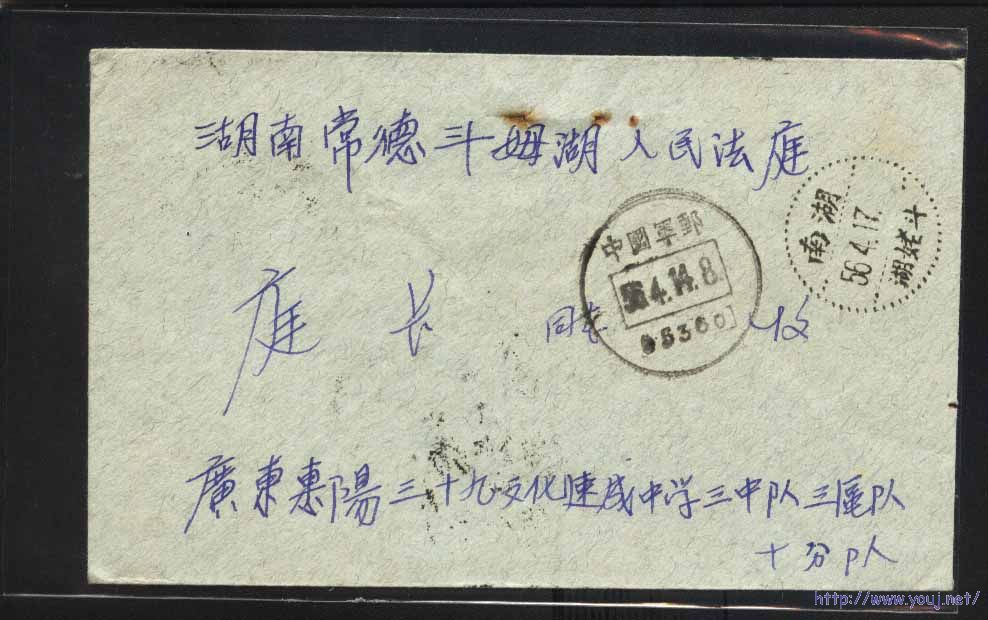 湖南常德斗姆湖人民法庭
庭长 同志 收
中國軍郵
56.4.14.8
95360
湖南
56.4.17
斗姥湖
廣東惠陽三十九文化速成中学三中队三區队
十分队
http://www.youj.net/